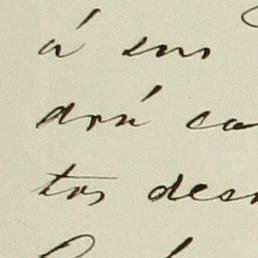 á sus
drá ca
tos des